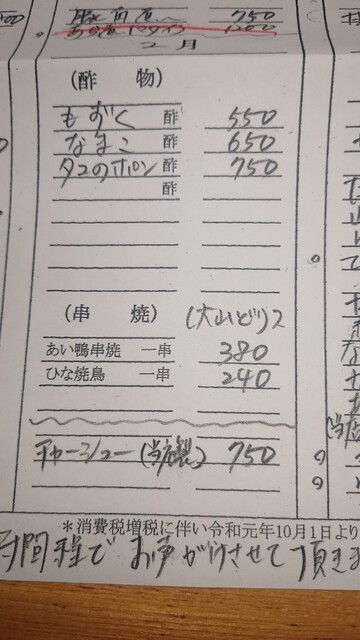 750
1200
2月
(酢 物)
もずく 酢 550
なまこ 酢 650
タコのポン 酢 750
酢
(串 焼) (大山どり)2
あい鴨串焼 一串 380
ひな焼鳥 一串 240
チャーシュー(当店製) 750
＊消費税増税に伴い令和元年10月1日より
時間程でお声がけさせて頂きま